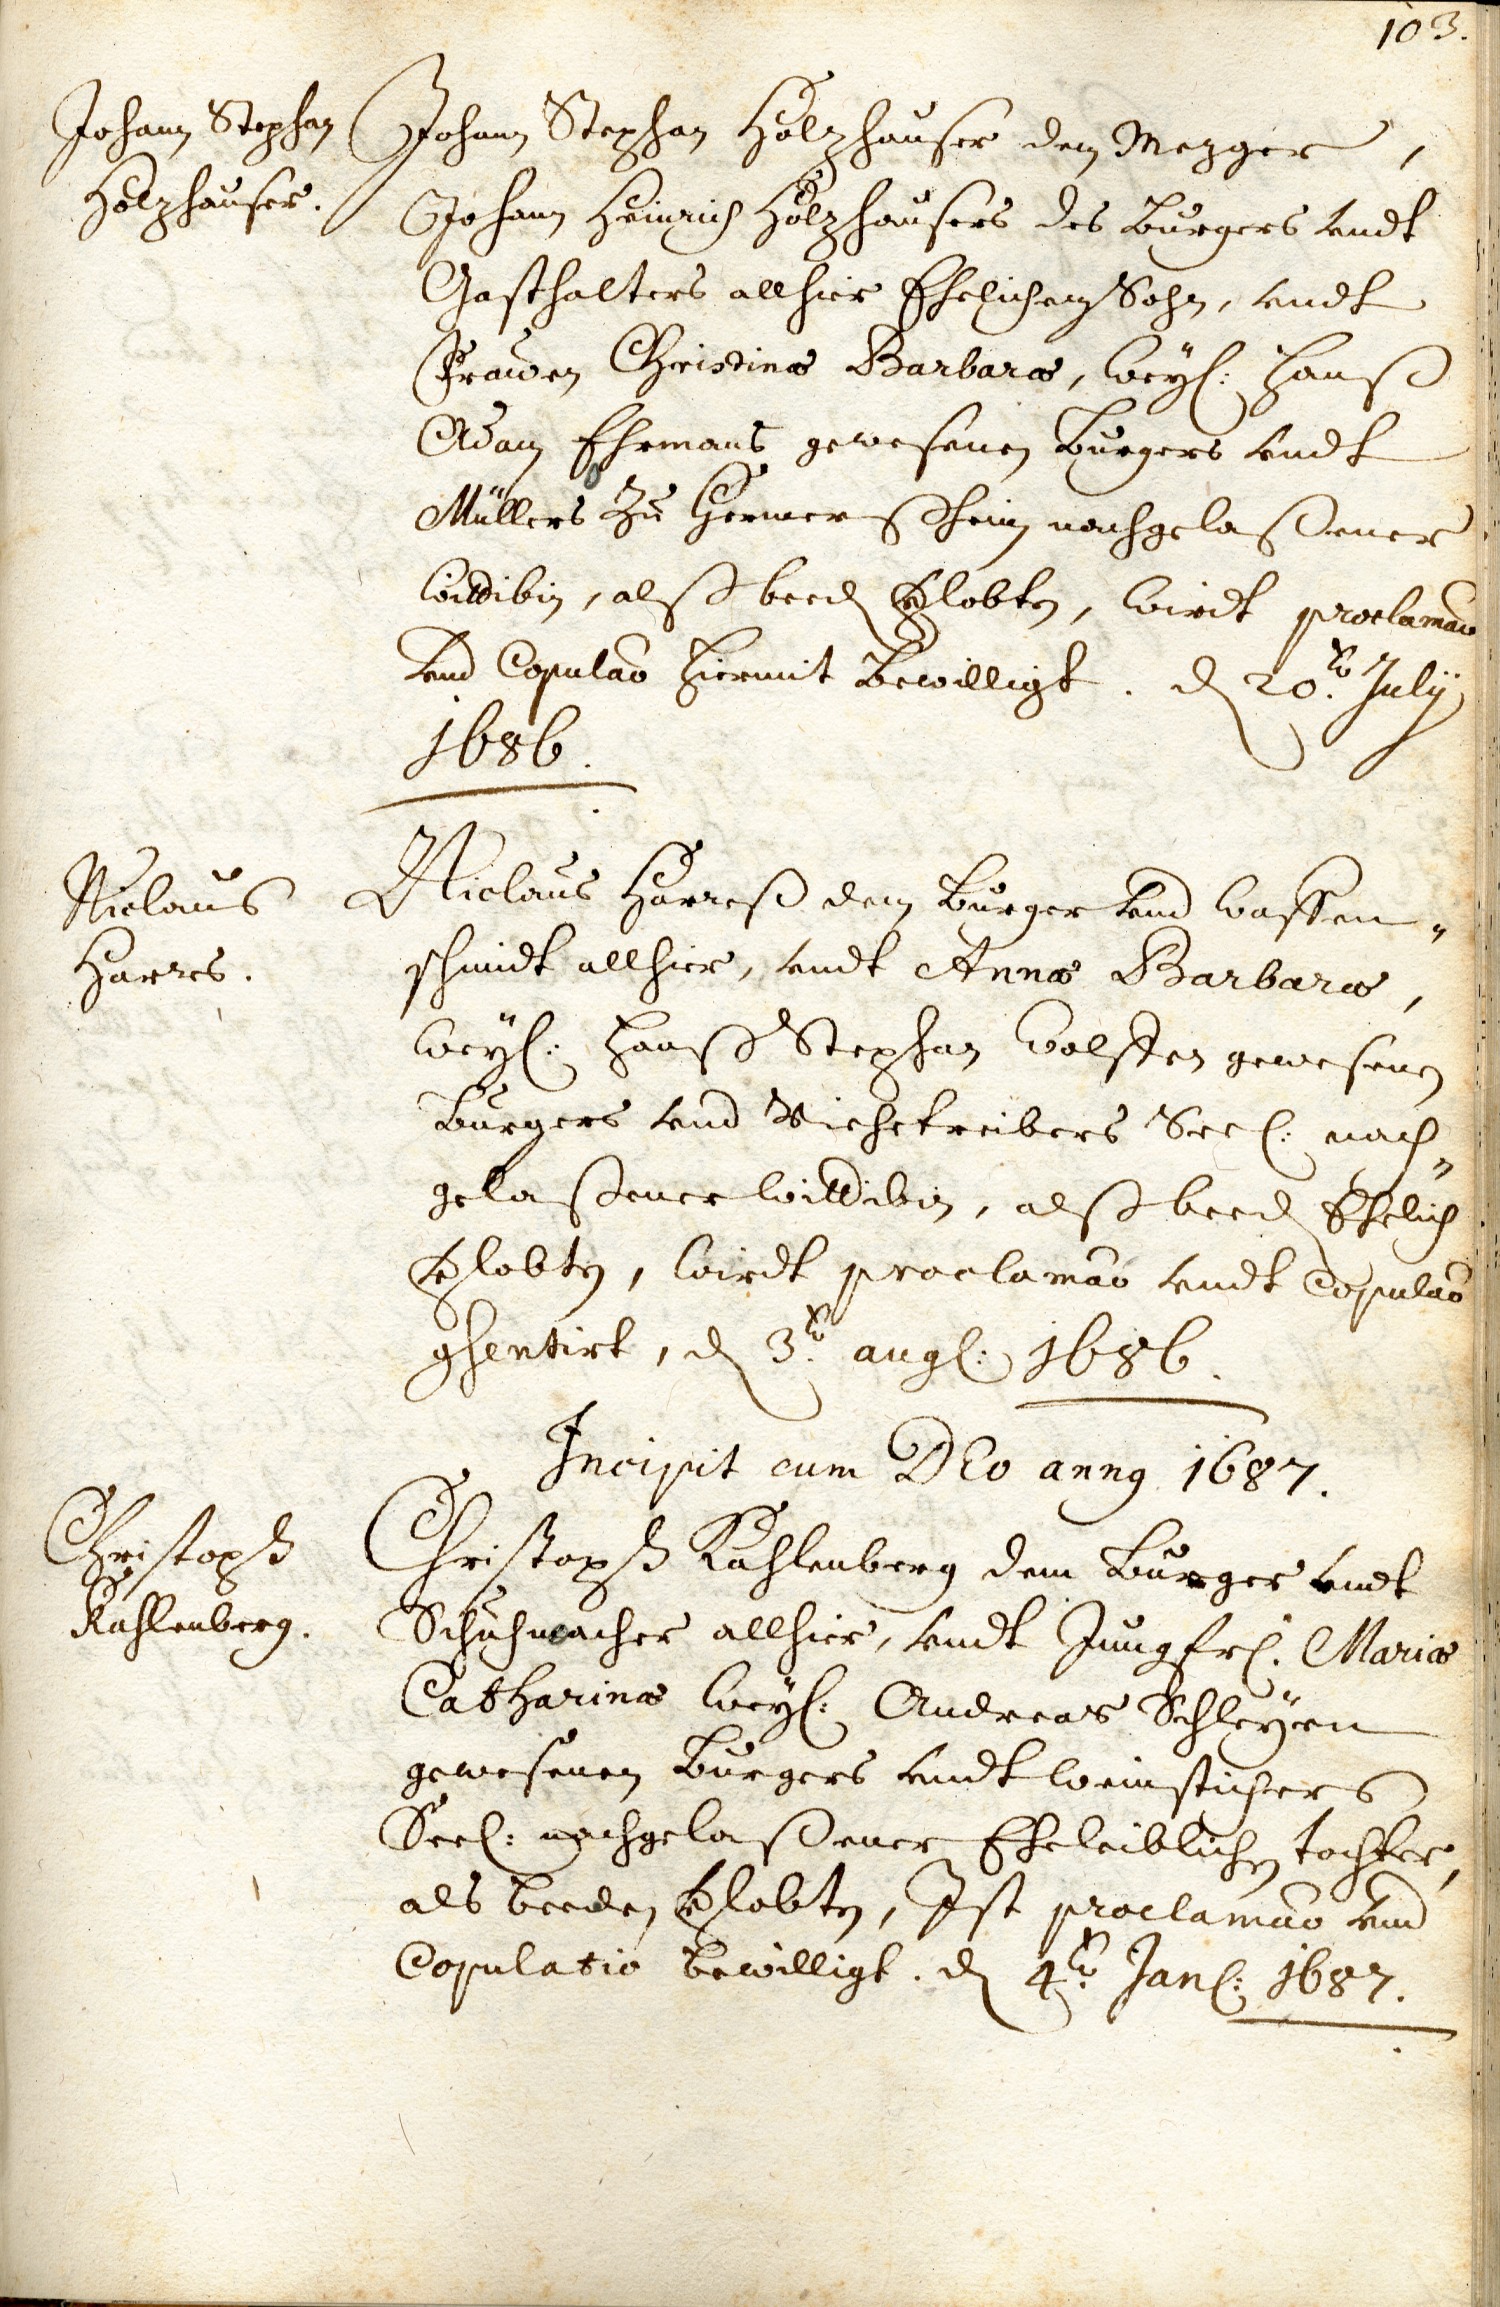 103.
Johann Stephan
Holzhauser.
Johann Stephan Holzhauser dem Mezger,
Johann Heinrich Holzhausers des Burgers vndt
Gasthalters allhier Ehelichem Sohn, vndt
Frawen Christinæ Barbaræ, weyl: Hanß
Adam Ehrmans gewesenen Burgers vndt
Müllers Zu Germerßheim nachgelaßener
Wittibin, alß beed Vlobten, wirdt proclamāo
vnd Copulāo hiermit bewilligt. d 20.ten July
1686.
Niclaus
Harres.
Niclaus Harreß dem Burger vnd Waffen„
schmidt allhier, vndt Annæ Barbaræ,
weyl: Hanß Stephan Wolffen gewesenen
Burgers vnd Viehetreibers Seel: nach„
gelaßener Wittibin, alß beed Ehelich
Vlobten, wirdt proclamāo vndt Copulāo
ghentirt, d 3.ten augl: 1686.
Incipit cum DEo anng 1687.
Christoph
Kahlenberg.
Christoph Kahlenberg dem Burger vndt
Schuhmacher allhier, vndt Jungfrl. Mariæ
Catharinæ weyl: Andreas Schleyen
gewesenen Burgers vndt Weinstichers
Seel: nachgelaßener Eheleiblichen tochter,
als beeden Vlobten, Ist proclamāo vnd
Copulatio bewilligt. d 4.ten Janl: 1687.